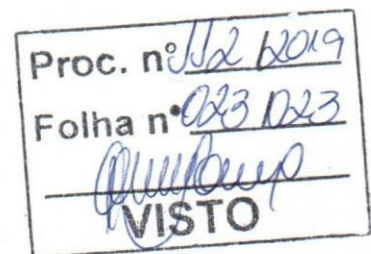 Proc. nº 112/2019
Folha nº 023/023
VISTO